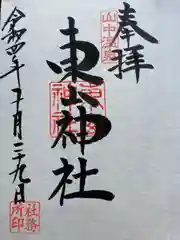 奉拝
山中温泉
東山神社
令和四年十月二十九日
社務所印